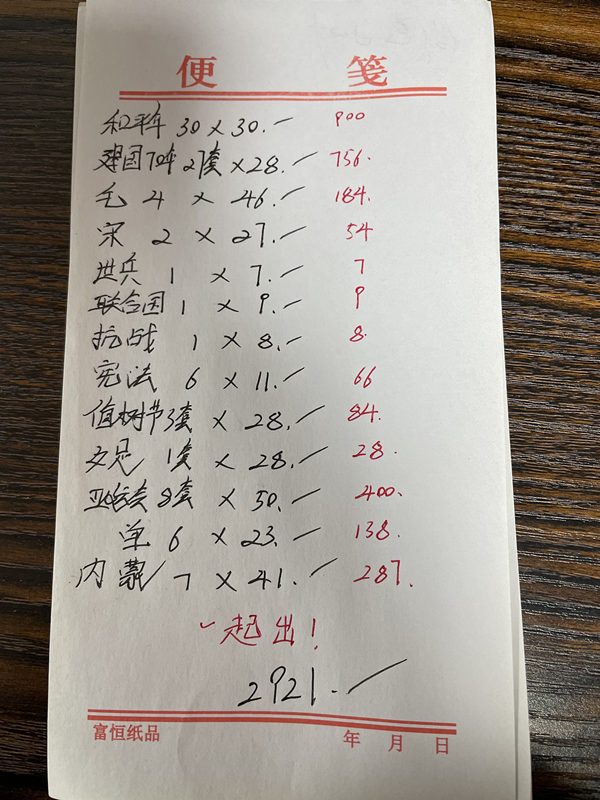 便 笺
和平年 30 × 30.- 900
建国70年 27套 × 28.- 756.
毛 4 × 46.- 184.
宋 2 × 27.- 54
世兵 1 × 7.- 7
联合国 1 × 9.- 9
抗战 1 × 8.- 8.
宪法 6 × 11.- 66
值树节3套 × 28.- 84.
女足 1套 × 28.- 28.
亚运会 8套 × 50.- 400.
单 6 × 23.- 138.
内蒙 7 × 41.- 287.
一起出!
2921.-
富恒纸品 年 月 日